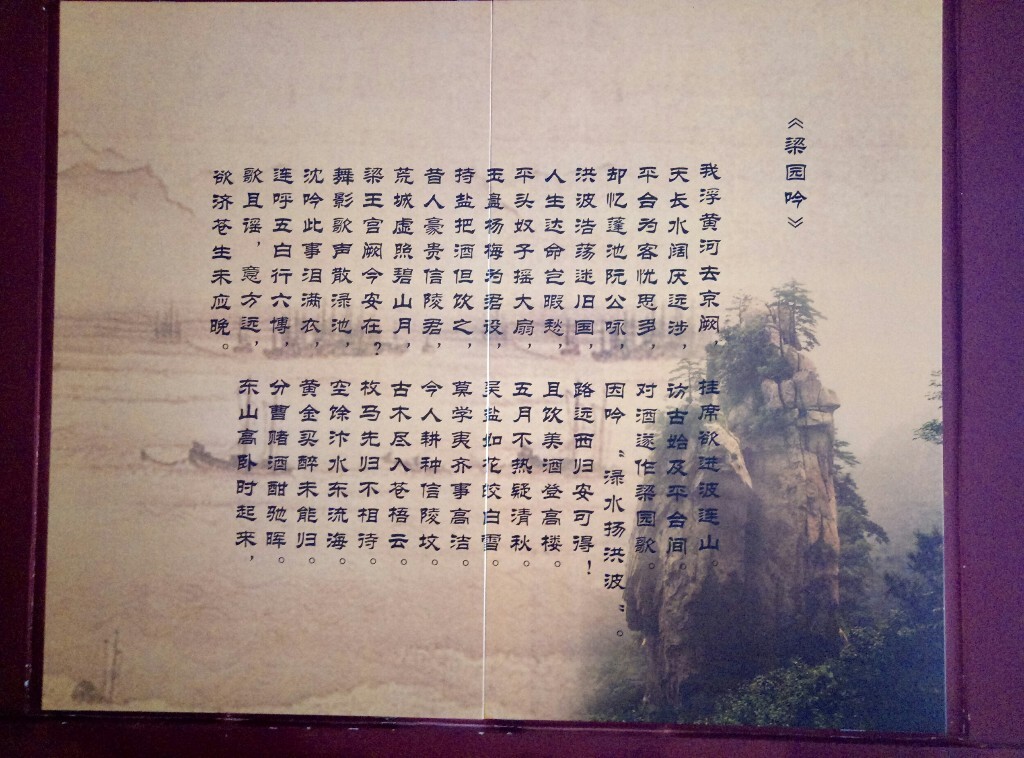 《梁园吟》
我浮黄河去京阙，挂席欲进波连山。
天长水阔厌远涉，访古始及平台间。
平台为客忧思多，对酒遂作梁园歌。
却忆蓬池阮公咏，因吟“渌水扬洪波”。
洪波浩荡迷旧国，路远西归安可得！
人生达命岂暇愁，且饮美酒登高楼。
平头奴子摇大扇，五月不热疑清秋。
玉盘杨梅为君设，吴盐如花皎白雪。
持盐把酒但饮之，莫学夷齐事高洁。
昔人豪贵信陵君，今人耕种信陵坟。
荒城虚照碧山月，古木尽入苍梧云。
梁王宫阙今安在？枚马先归不相待。
舞影歌声散渌池，空馀汴水东流海。
沈吟此事泪满衣，黄金买醉未能归。
连呼五白行六博，分曹赌酒酣驰晖。
歌且谣，意方远，东山高卧时起来，
欲济苍生未应晚。